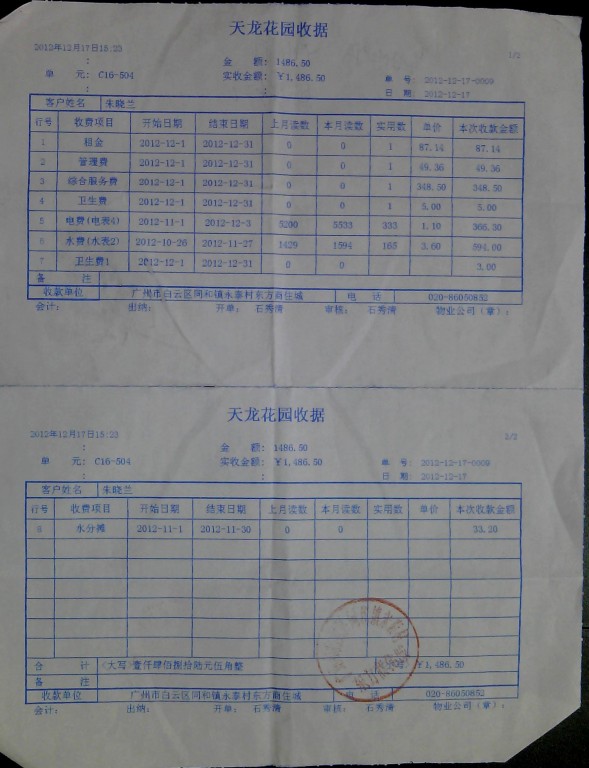 天龙花园收据
2012年12月17日15:23 金 额: 1486.50 1/2
单 元: C16-504 实收金额: ￥1,486.50 单 号: 2012-12-17-0009
日 期: 2012-12-17
客户姓名 朱晓兰
行号 收费项目 开始日期 结束日期 上月读数 本月读数 实用数 单价 本次收款金额
1 租金 2012-12-1 2012-12-31 0 0 1 87.14 87.14
2 管理费 2012-12-1 2012-12-31 0 0 1 49.36 49.36
3 综合服务费 2012-12-1 2012-12-31 0 0 1 348.50 348.50
4 卫生费 2012-12-1 2012-12-31 0 0 1 5.00 5.00
5 电费(电表4) 2012-11-1 2012-12-3 5200 5533 333 1.10 366.30
6 水费(水表2) 2012-10-26 2012-11-27 1429 1594 165 3.60 594.00
7 卫生费1 2012-12-1 2012-12-31 0 0 3.00
备 注
收款单位 广州市白云区同和镇永泰村东方商住城 电 话 020-86050852
会计: 出纳: 开单: 石秀清 审核: 石秀清 物业公司(章):
天龙花园收据
2012年12月17日15:23 金 额: 1486.50 2/2
单 元: C16-504 实收金额: ￥1,486.50 单 号: 2012-12-17-0009
日 期: 2012-12-17
客户姓名 朱晓兰
行号 收费项目 开始日期 结束日期 上月读数 本月读数 实用数 单价 本次收款金额
8 水分摊 2012-11-1 2012-11-30 0 0 33.20
合 计 (大写)壹仟肆佰捌拾陆元伍角整 ￥1,486.50
备 注
收款单位 广州市白云区同和镇永泰村东方商住城 电 话 020-86050852
会计: 出纳: 开单: 石秀清 审核: 石秀清 物业公司(章):